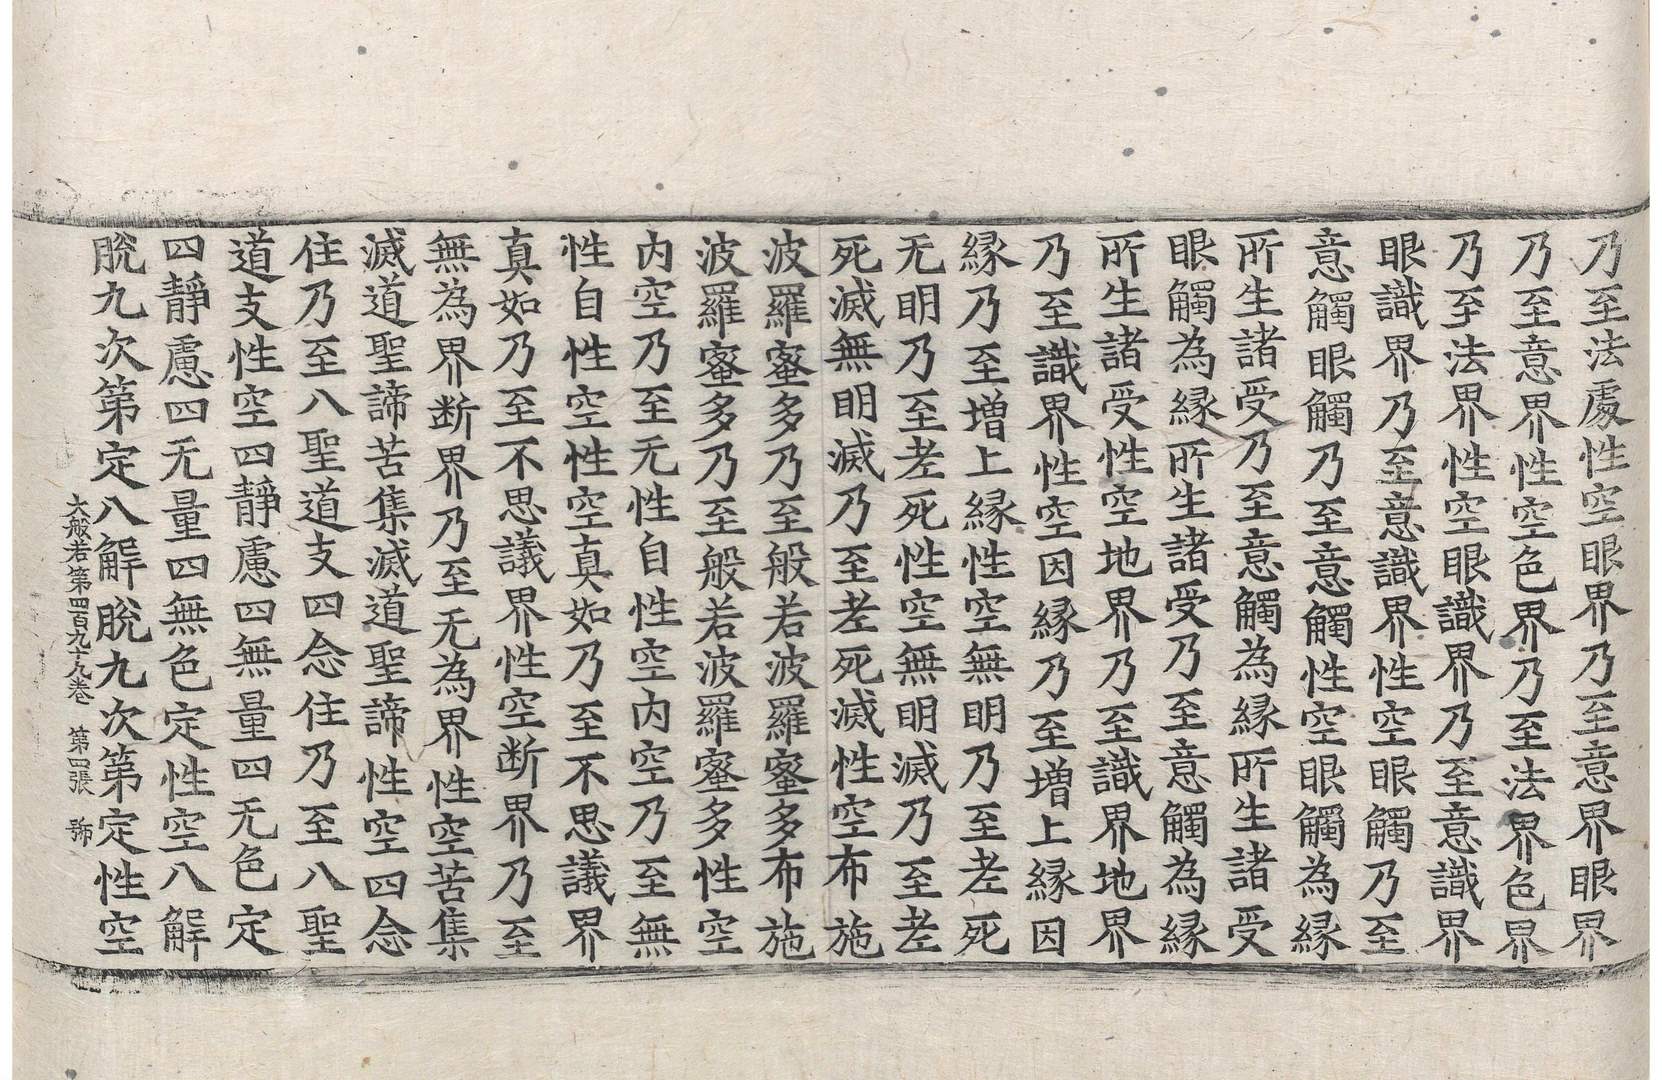 乃至法處性空眼界乃至意界眼界
乃至意界性空色界乃至法界色界
乃至法界性空眼識界乃至意識界
眼識界乃至意識界性空眼觸乃至
意觸眼觸乃至意觸性空眼觸為縁
所生諸受乃至意觸為縁所生諸受
眼觸為縁所生諸受乃至意觸為縁
所生諸受性空地界乃至識界地界
乃至識界性空因縁乃至増上縁因
縁乃至増上縁性空無明乃至老死
无明乃至老死性空無明滅乃至老
死滅無明滅乃至老死滅性空布施
波羅蜜多乃至般若波羅蜜多布施
波羅蜜多乃至般若波羅蜜多性空
内空乃至无性自性空内空乃至無
性自性空性空真如乃至不思議界
真如乃至不思議界性空断界乃至
無為界断界乃至无為界性空苦集
滅道聖諦苦集滅道聖諦性空四念
住乃至八聖道支四念住乃至八聖
道支性空四靜慮四無量四无色定
四靜慮四无量四無色定性空八解
脫九次第定八解脫九次第定性空
大般若第四百九十九卷　第四張　珎